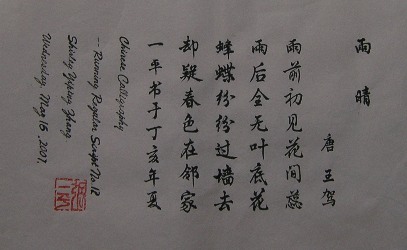 雨晴
唐 王驾
雨前初见花间蕊
雨后全无叶底花
蜂蝶纷纷过墙去
却疑春色在邻家
一平书于丁亥年夏
Chinese Calligraphy
-- Running Regular Script No.12
Shirley Yiping Zhang
Wednesday, May 16, 2007,